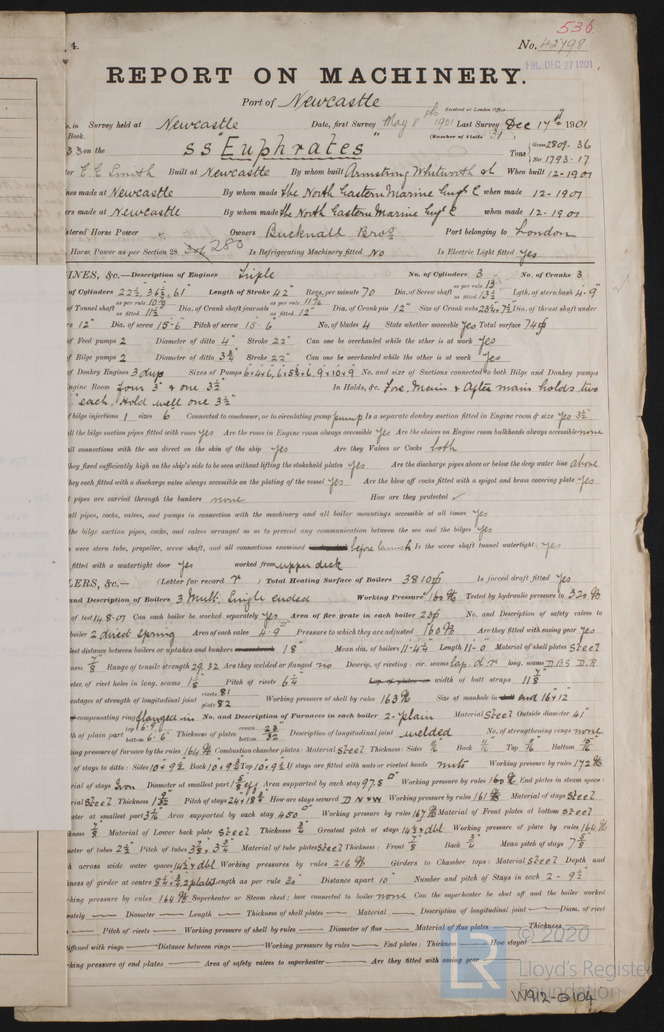 536
4.
No. 42798
FRI. DEC 27 1901
REPORT ON MACHINERY.
Port of Newcastle
Received at London Office
No. in Survey held at Newcastle Date, first Survey May 8th 1901 Last Survey Dec 17th 1901
Book. (Number of Visits 31)
33 on the S S "Euphrates" Tons { Gross 2809.36
Net 1793-17
E E Smith Built at Newcastle By whom built Armstrong Whitworth & When built 12-1901
ines made at Newcastle By whom made The North Eastern Marine Engg C when made 12-1901
ers made at Newcastle By whom made The North Eastern Marine Engg C when made 12.1901
stered Horse Power Owners Bucknall Bros Port belonging to London
Horse Power as per Section 28 283 Is Refrigerating Machinery fitted No Is Electric Light fitted yes
INES, &c.—Description of Engines Triple No. of Cylinders 3 No. of Cranks 3
of Cylinders 22½ 36½ 61" Length of Stroke 42" Revs. per minute 70 Dia. of Screw shaft as per rule 13 as fitted 13½ Lgth. of stern bush 4-9"
of Tunnel shaft as fitted 11½ Dia. of Crank shaft journals as per rule as fitted 12" Dia. of Crank pin 12" Size of Crank webs Dia. of thrust shaft under
rs 12" Dia. of screw 15-6" Pitch of screw 15-6 No. of blades 4 State whether moveable yes Total surface 74
of Feed pumps 2 Diameter of ditto 4" Stroke 22" Can one be overhauled while the other is at work yes
of Bilge pumps 2 Diameter of ditto 3¾ Stroke 22" Can one be overhauled while the other is at work yes
of Donkey Engines 3 dup Sizes of Pumps No. and size of Suctions connected to both Bilge and Donkey pumps
Engine Room four 3" & one 3½" In Holds, &c. Fore, Main & After main holds two
each, Hold well one 3½"
of bilge injections 1 sizes 6 Connected to condenser, or to circulating pump pump Is a separate donkey suction fitted in Engine room & size yes 3½
ll the bilge suction pipes fitted with roses yes Are the roses in Engine room always accessible yes Are the sluices on Engine room bulkheads always accessible none
ll connections with the sea direct on the skin of the ship yes Are they Valves or Cocks both
they fixed sufficiently high on the ship's side to be seen without lifting the stokehold plates yes Are the discharge pipes above or below the deep water line above
they each fitted with a discharge valve always accessible on the plating of the vessel yes Are the blow off cocks fitted with a spigot and brass covering plate yes
t pipes are carried through the bunkers none How are they protected ✓
all pipes, cocks, valves, and pumps in connection with the machinery and all boiler mountings accessible at all times yes
the bilge suction pipes, cocks, and valves arranged so as to prevent any communication between the sea and the bilges yes
were stern tube, propeller, screw shaft, and all connections examined before launch Is the screw shaft tunnel watertight yes
fitted with a watertight door yes worked from upper deck
LERS, &c.— (Letter for record r) Total Heating Surface of Boilers 3810 Is forced draft fitted yes
and Description of Boilers 3 Mult. Single ended Working Pressure 160 lb Tested by hydraulic pressure to 320 lb
of test 14.8.07 Can each boiler be worked separately yes Area of fire grate in each boiler No. and Description of safety valves to
boiler 2 direct spring Area of each valve 4.9 Pressure to which they are adjusted 160 lb Are they fitted with easing gear yes
lest distance between boilers or uptakes and bunkers 18" Mean dia. of boilers 11-4¼ Length 11-0 Material of shell plates Steel
ness ⅞ Range of tensile strength 29.32 Are they welded or flanged no Descrip. of riveting: cir. seams lap. d r long. seams D B S D.R
eter of rivet holes in long. seams Pitch of rivets 6¼ width of butt straps
entages of strength of longitudinal joint rivets 81 plate 82 Working pressure of shell by rules 163 lb Size of manhole in end 16×12
compensating ring flanged in No. and Description of Furnaces in each boiler 2-plain Material Steel Outside diameter 41"
th of plain part top 6.9 bottom 6.6 Thickness of plates crown bottom Description of longitudinal joint welded No. of strengthening rings none
ing pressure of furnace by the rules 164 lb Combustion chamber plates: Material Steel Thickness: Sides Back Top Bottom
of stays to ditto: Sides 10×9½ Back 10×9½ Top 10×9½ If stays are fitted with nuts or riveted heads nuts Working pressure by rules 172 lb
rial of stays Iron Diameter at smallest part Area supported by each stay 97.5 Working pressure by rules 160 lb End plates in steam space:
rial Steel Thickness Pitch of stays How are stays secured D N & W Working pressure by rules 161 lb Material of stays Steel
eter at smallest part Area supported by each stay 450 Working pressure by rules 167 lb Material of Front plates at bottom Steel
kness ⅞ Material of Lower back plate Steel Thickness Greatest pitch of stays 14½ & dbl Working pressure of plate by rules 164 lb
meter of tubes 2½ Pitch of tubes Material of tube plates Steel Thickness: Front Back Mean pitch of stays
h across wide water spaces 14½ & dbl Working pressures by rules 216 lb Girders to Chamber tops: Material Steel Depth and
kness of girder at centre Length as per rule 30" Distance apart 10" Number and pitch of Stays in each 2 - 9½"
king pressure by rules 164 lb Superheater or Steam chest; how connected to boiler none Can the superheater be shut off and the boiler worked
rately Diameter Length Thickness of shell plates Material Description of longitudinal joint Diam. of rivet
Pitch of rivets Working pressure of shell by rules Diameter of flue Material of flue plates Thickness
iffened with rings Distance between rings Working pressure by rules End plates: Thickness How stayed
rking pressure of end plates Area of safety valves to superheater Are they fitted with easing gear
© 2020
LR
Lloyd's Register
Foundation
W912-0104